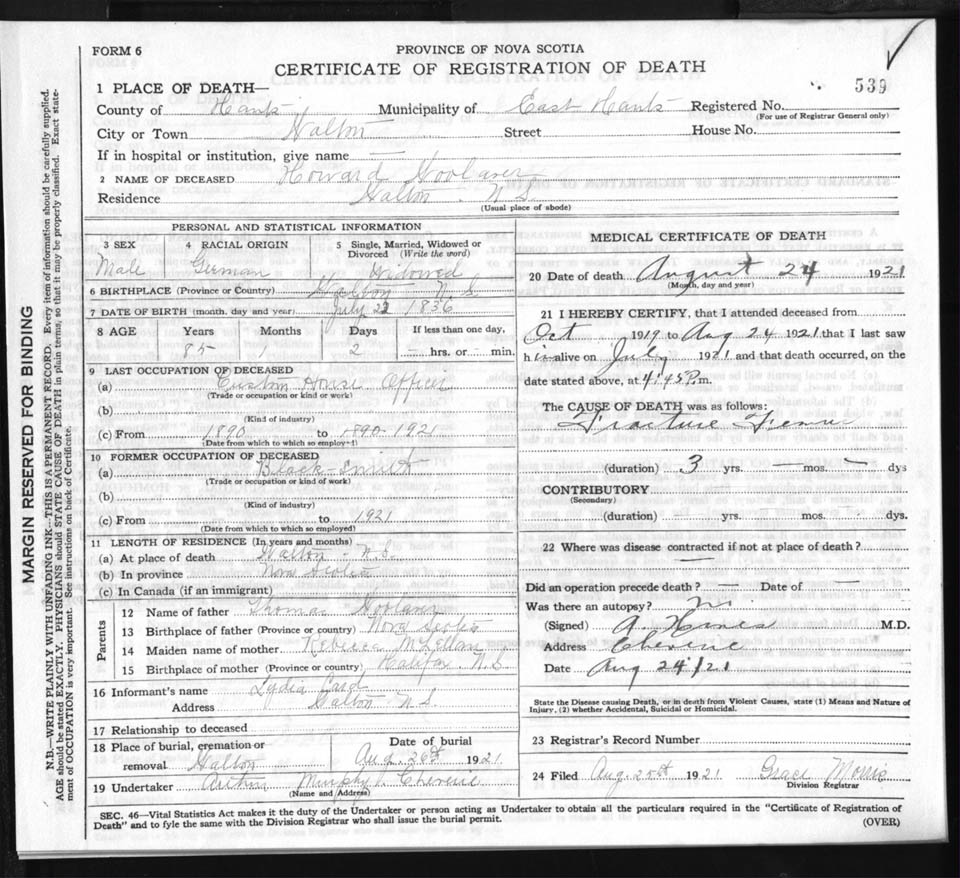 FORM 6
PROVINCE OF NOVA SCOTIA
CERTIFICATE OF REGISTRATION OF DEATH
539
1 PLACE OF DEATH—
County of Hants Municipality of East Hants Registered No.
(For use of Registrar General only)
City or Town Walton Street House No.
If in hospital or institution, give name —
2 NAME OF DECEASED Howard Woolaver
Residence Walton N S.
(Usual place of abode)
PERSONAL AND STATISTICAL INFORMATION
3 SEX 4 RACIAL ORIGIN 5 Single, Married, Widowed or Divorced (Write the word)
Male German Widowed
6 BIRTHPLACE (Province or Country) Walton N.S.
7 DATE OF BIRTH (month, day and year) July 22 1836
8 AGE Years Months Days If less than one day,
85 1 2 hrs. or min.
9 LAST OCCUPATION OF DECEASED
(a) Custom House Officer
(Trade or occupation or kind or work)
(b)
(Kind of industry)
(c) From 1890 to 1890-1921
(Date from which to which so employed)
10 FORMER OCCUPATION OF DECEASED
(a) Black-Smith
(Trade or occupation or kind of work)
(b)
(Kind of industry)
(c) From to 1921
(Date from which to which so employed)
11 LENGTH OF RESIDENCE (In years and months)
(a) At place of death Walton - N.S.
(b) In province Nova Scotia
(c) In Canada (if an immigrant)
Parents
12 Name of father Thomas Woolaver
13 Birthplace of father (Province or country) Nova Scotia
14 Maiden name of mother Rebecca McLellan
15 Birthplace of mother (Province or country) Halifax N.S.
16 Informant's name Lydia Card
Address Walton N.S.
17 Relationship to deceased
18 Place of burial, cremation or removal Walton
Date of burial Aug. 26th 1921
19 Undertaker Arthur Murphy Cheverie
(Name and Address)
MEDICAL CERTIFICATE OF DEATH
20 Date of death August 24 1921
(Month, day and year)
21 I HEREBY CERTIFY, that I attended deceased from
Oct 1919 to Aug 24 1921 that I last saw
him alive on July 1921 and that death occurred, on the
date stated above, at 4:45 P.m.
The CAUSE OF DEATH was as follows:
Fracture Femur
(duration) 3 yrs. — mos. — dys
CONTRIBUTORY
(Secondary)
(duration) yrs. mos. dys.
22 Where was disease contracted if not at place of death?
—
Did an operation precede death? — Date of —
Was there an autopsy? No
(Signed) A. M.D.
Address Cheverie
Date Aug 24/21
State the Disease causing Death, or in death from Violent Causes, state (1) Means and Nature of Injury, (2) whether Accidental, Suicidal or Homicidal.
23 Registrar's Record Number
24 Filed Aug. 25th 1921 Grace Morris
Division Registrar
SEC. 46—Vital Statistics Act makes it the duty of the Undertaker or person acting as Undertaker to obtain all the particulars required in the "Certificate of Registration of
Death" and to fyle the same with the Division Registrar who shall issue the burial permit.
(OVER)
MARGIN RESERVED FOR BINDING
N.B.—WRITE PLAINLY WITH UNFADING INK—THIS IS A PERMANENT RECORD. Every item of information should be carefully supplied.
AGE should be stated EXACTLY. PHYSICIANS should STATE CAUSE OF DEATH in plain terms, so that it may be properly classified. Exact state-
ment of OCCUPATION is very important. See instructions on back of Certificate.